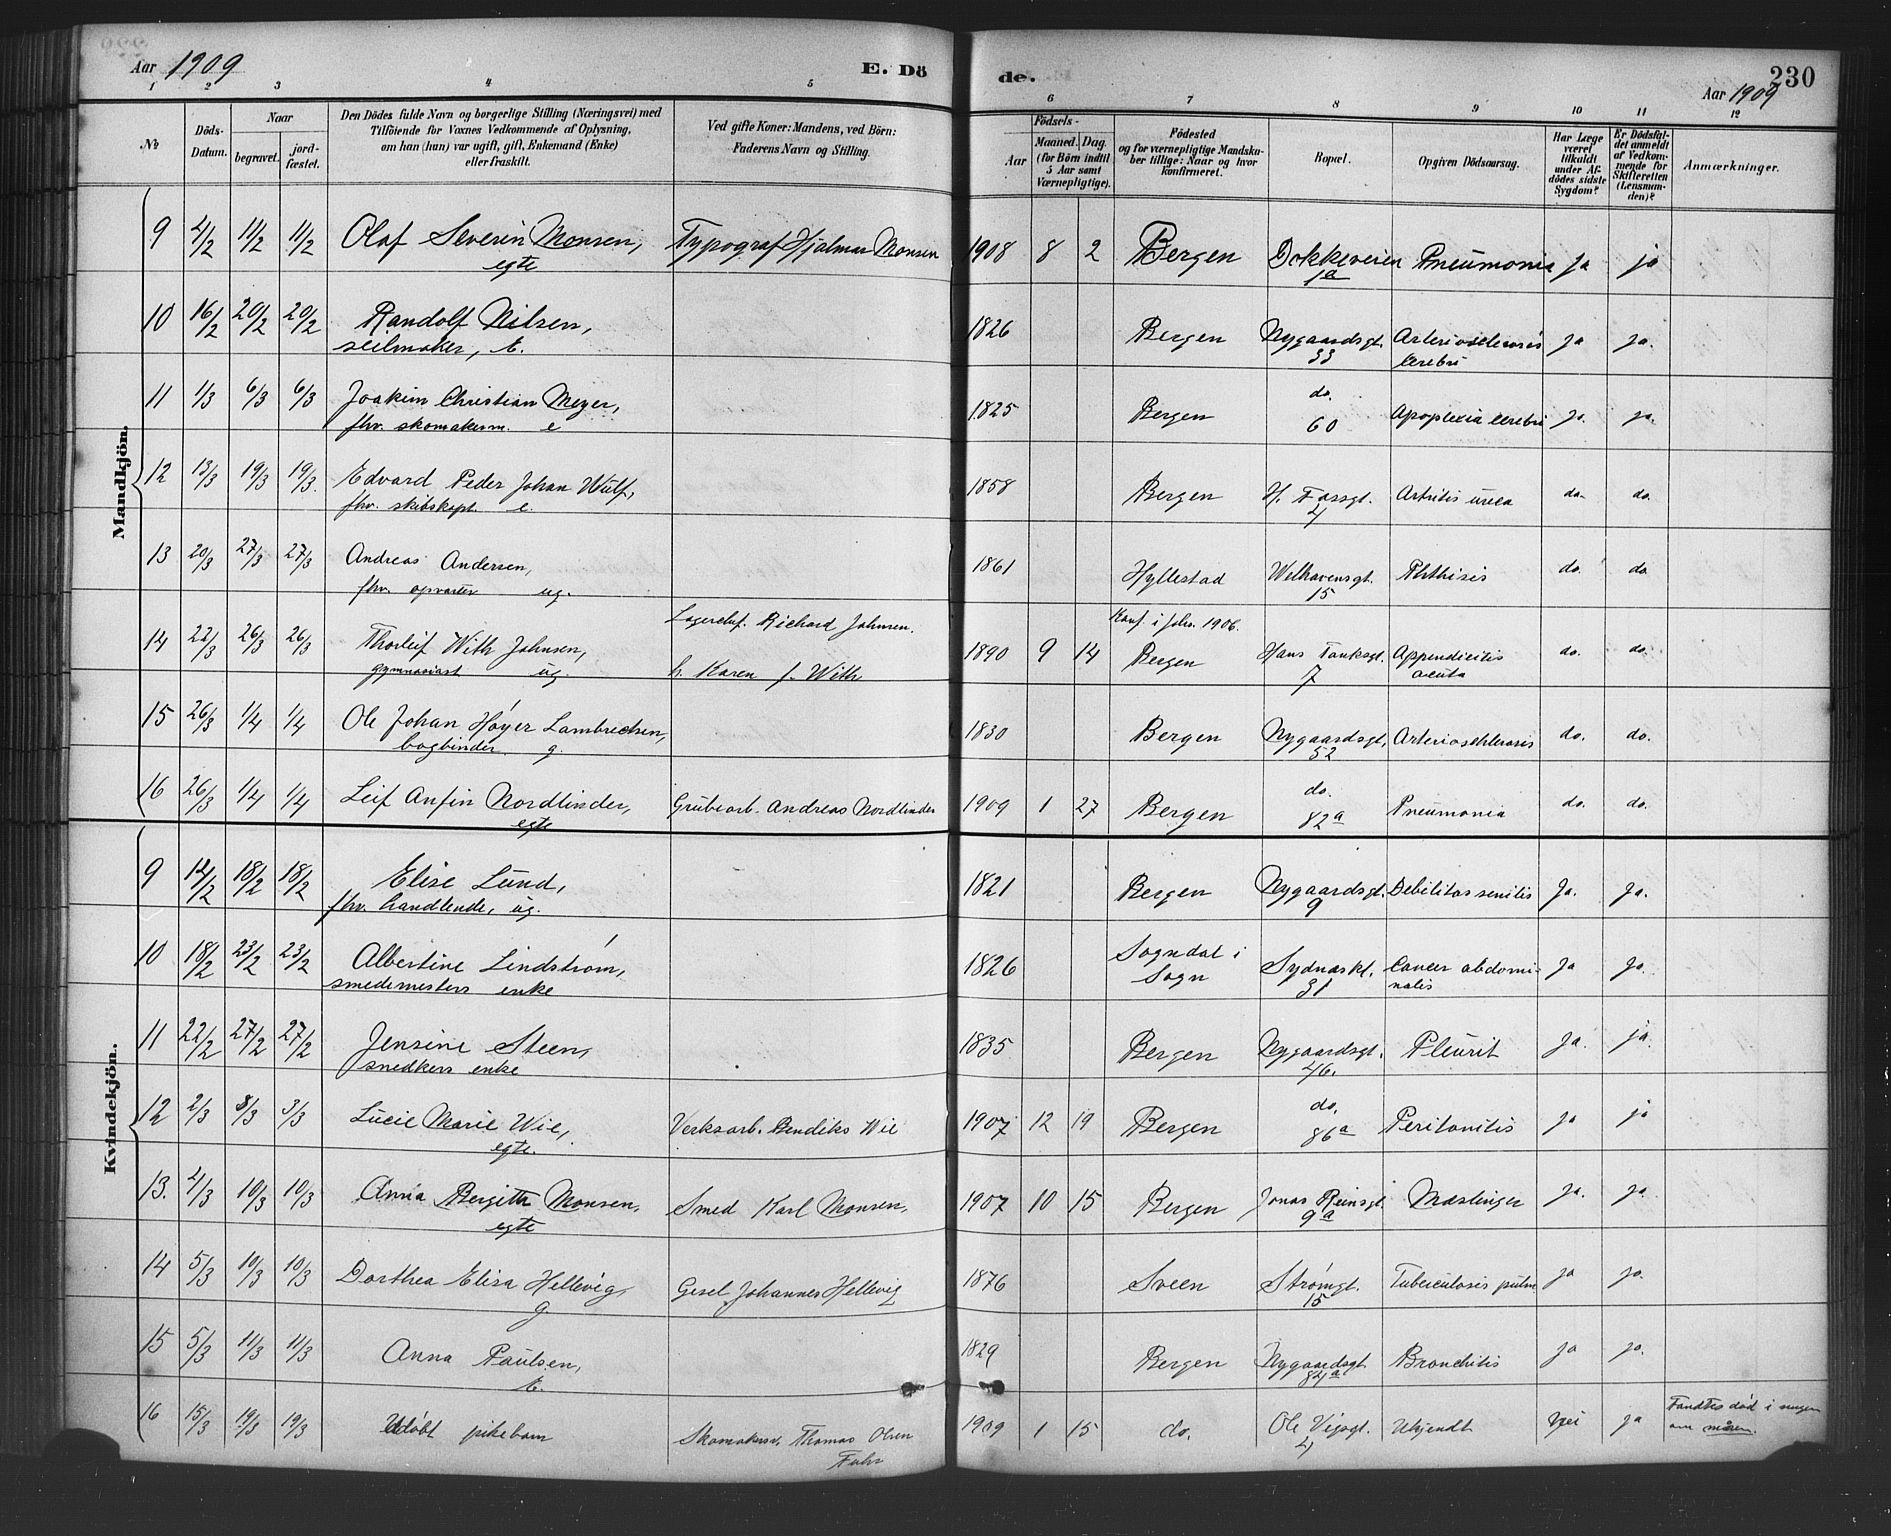 Aar 1909
E. Dö
de.
Aar 1909
230
1 2 3 4 5 6 7 8 9 10 11 12
No
Döds-Datum.
Naar
begravet.
jord-fæstet.
Den Dödes fulde Navn og borgerlige Stilling (Næringsvei) med
Tilföiende for Voxnes Vedkommende af Oplysning,
om han (hun) var ugift, gift, Enkemand (Enke)
eller fraskilt.
Ved gifte Koner: Mandens, ved Börn:
Faderens Navn og Stilling.
Födsels-
Aar
Maaned. Dag.
(for Börn indtil
5 Aar samt
Værnepligtige).
Födested
og for værnepligtige Mandska-
ber tillige: Naar og hvor
konfirmeret.
Bopæl.
Opgiven Dödsaarsag.
Har Læge
været
tilkaldt
under Af-
dödes sidste
Sygdom?
Er Dödsfal-
det anmeldt
af Vedkom-
mende for
Skifteretten
(Lensman-
den)?
Anmærkninger.
Mandkjön.
9 4/2 11/2 11/2 Olaf Severin Monsen, Typograf Hjalmar Monsen 1908 8 2 Bergen Dokkeveien Pneumonia ja ja
egte 1a
10 16/2 20/2 20/2 Randolf Nilsen, 1826 Bergen Nygaardsgt. Arteriosclerosis ja ja.
seilmaker, E. 33 cerebri
11 1/3 6/3 6/3 Joakim Christian Meyer, 1825 Bergen do. Apoplexia cerebri ja. ja.
fhv. skomakerm. e 60
12 13/3 19/3 19/3. Edvard Peder Johan Wulf, 1858 Bergen H. Fassgt. Artritis urica do. do.
fhv. skibskapt. e. 4
13 20/3 27/3 27/3 Andreas Andersen, 1861 Hyllestad Welhavensgt. Phthisis do. do.
fhv. opvarter ug. 15
14 22/3 26/3 26/3 Thorleif With Johnsen, Lagerchf. Richard Johnsen. 1890 9 14 Konf. i Johs. 1906. Bergen Hans Tanksgt. Appendicitis do. do.
gymnasiast ug. h. Karen f. With 7 acuta
15 26/3 1/4 1/4 Ole Johan Høyer Lambrechsen, 1830 Bergen Nygaardsgt. Arteriosclerosis do. do.
bogbinder g. 52
16 26/3 1/4 1/4 Leif Anfin Nordlinder, Grubearb. Andreas Nordlinder 1909 1 27 Bergen do. Pneumonia do. do.
egte 82a
Kvindekjön.
9 14/2 18/2 18/2 Elise Lund, 1821 Bergen Nygaardsgt. Debilitas senilis Ja. Ja.
fhv. handlende, ug. 9
10 18/2 23/2 23/2 Albertine Lindstrøm, 1826 Sogndal i Sydneskl. Cancer abdomi- ja ja.
smedemesters enke Sogn 31 nalis
11 22/2 27/2 27/2 Jensine Steen, 1835 Bergen Nygaardsgt. Pleurit ja. ja.
snedkers enke 46.
12 2/3 8/3 3/3 Lucie Marie Wie, Verksarb. Bendiks Wie 1907 12 19 Bergen do. Peritonitis ja ja
egte. 86a
13. 4/3 10/3 10/3 Anna Bergitte Monsen, Smed Karl Monsen, 1907 10 15 Bergen Jonas Reinsgt. Mæslinger ja. ja
egte 9a
14 5/3 10/3 10/3 Dorthea Elisa Hellevig, Gesel Johannes Hellevig 1876 Sveen Strømgt. Tuberculosis pulm ja ja.
g 15
15 5/3 11/3 11/3 Anna Paulsen, 1829 Bergen Nygaardsgt. Bronchitis ja ja.
E. 84a
16 15/3 19/3 19/3 Udøbt pikebarn Skomakersv. Thomas Olsen 1909 1 15 do. Ole Vigsgt. Ukjendt Nei ja Fandtes død i sengen
4 om morgen.